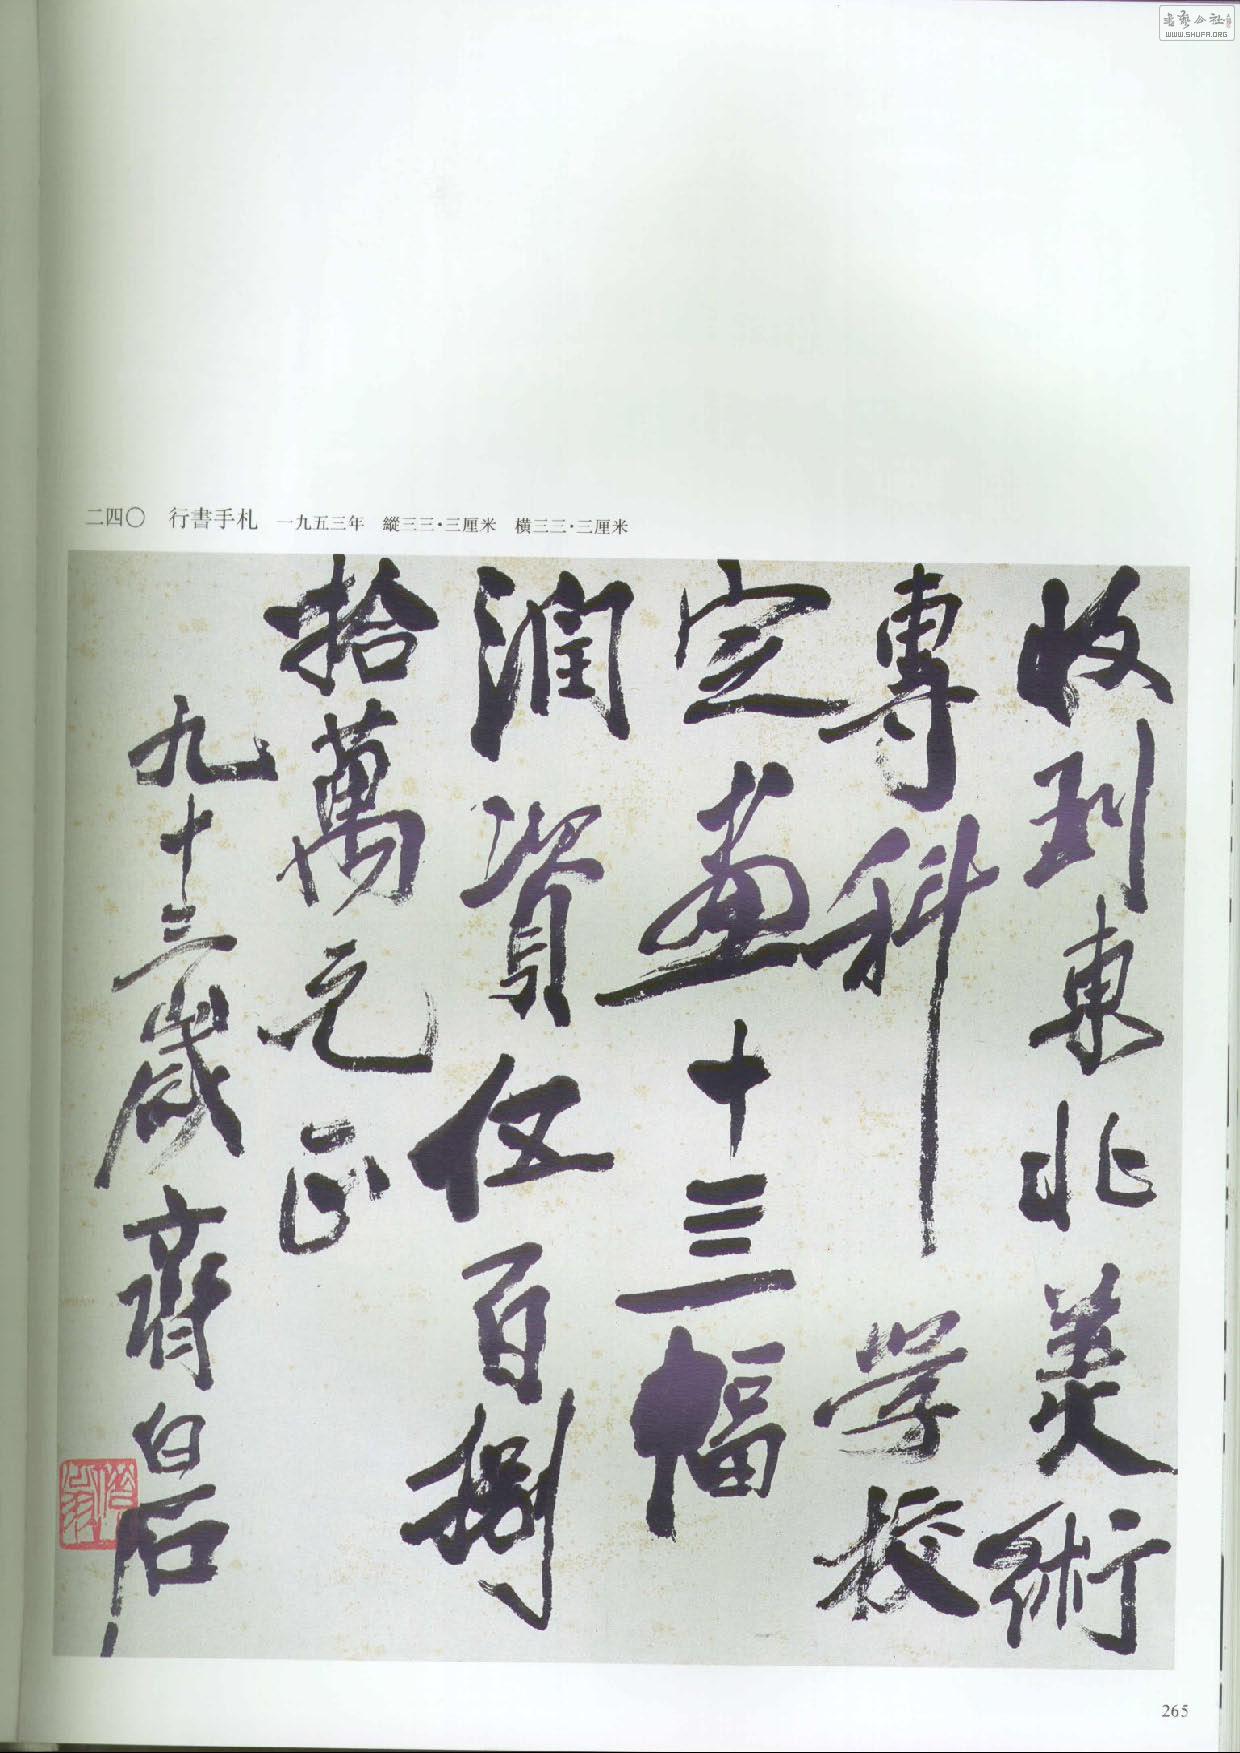 書藝公社
WWW.SHUFA.ORG
二四〇 行書手札 一九五三年 縱三三·三厘米 橫三三·三厘米
收到東北美術
專科學校
定画十三幅
潤資仅百捌
拾萬元正
九十三歲齊白石
265